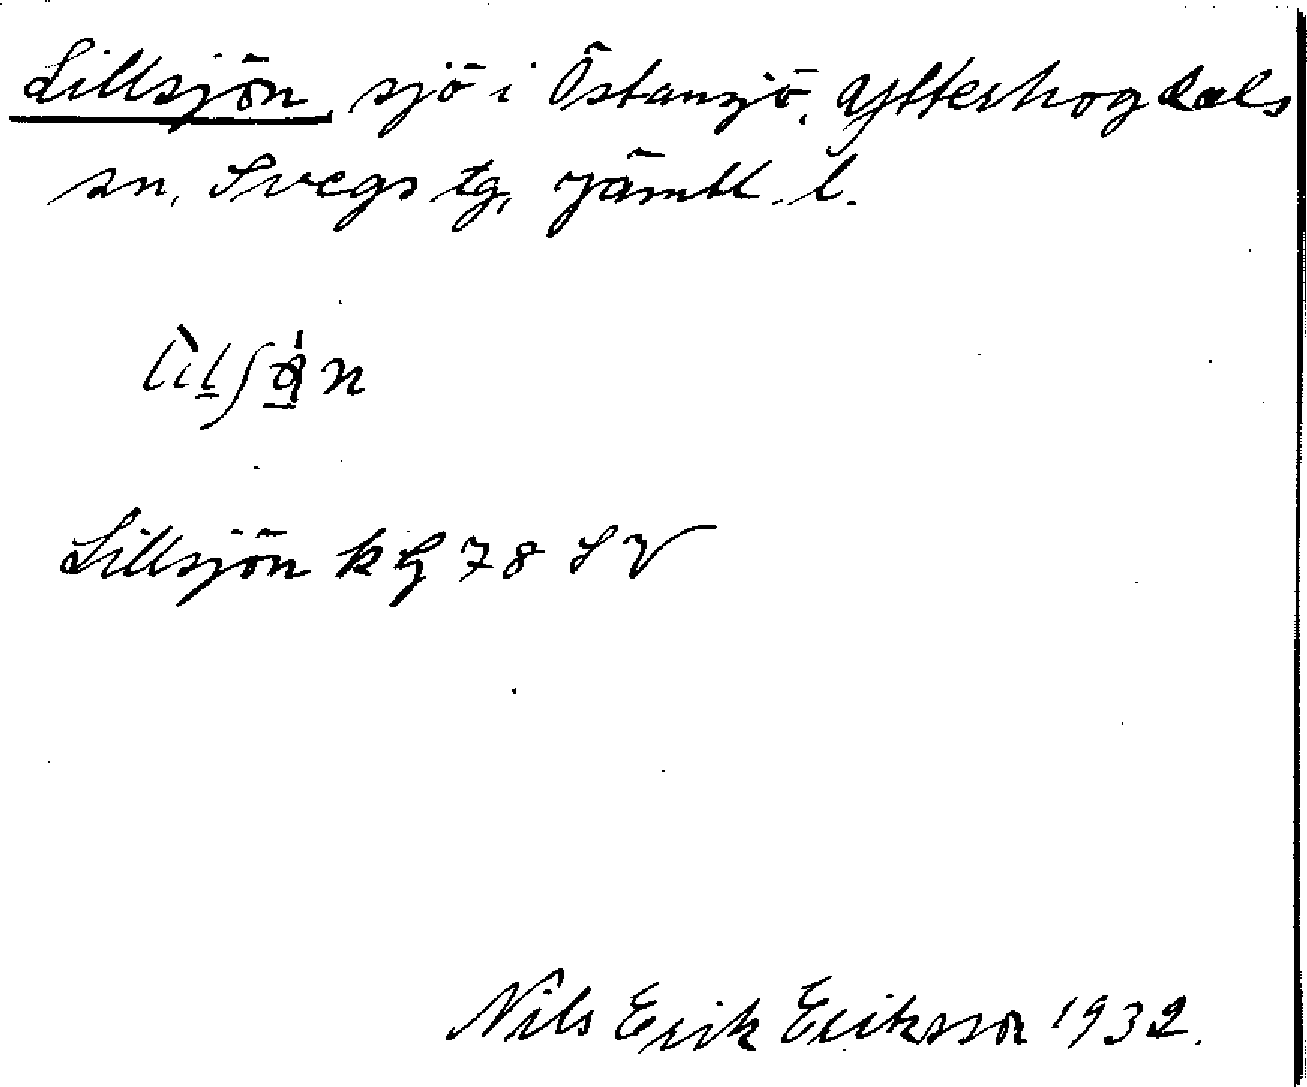 Lillsjön, sjö i Östansjö, Ytterhogdals
sn, Svegs tg, Jämtl. l.
Lillsjön k G 78 S V
Nils Erik Eriksson 1932.